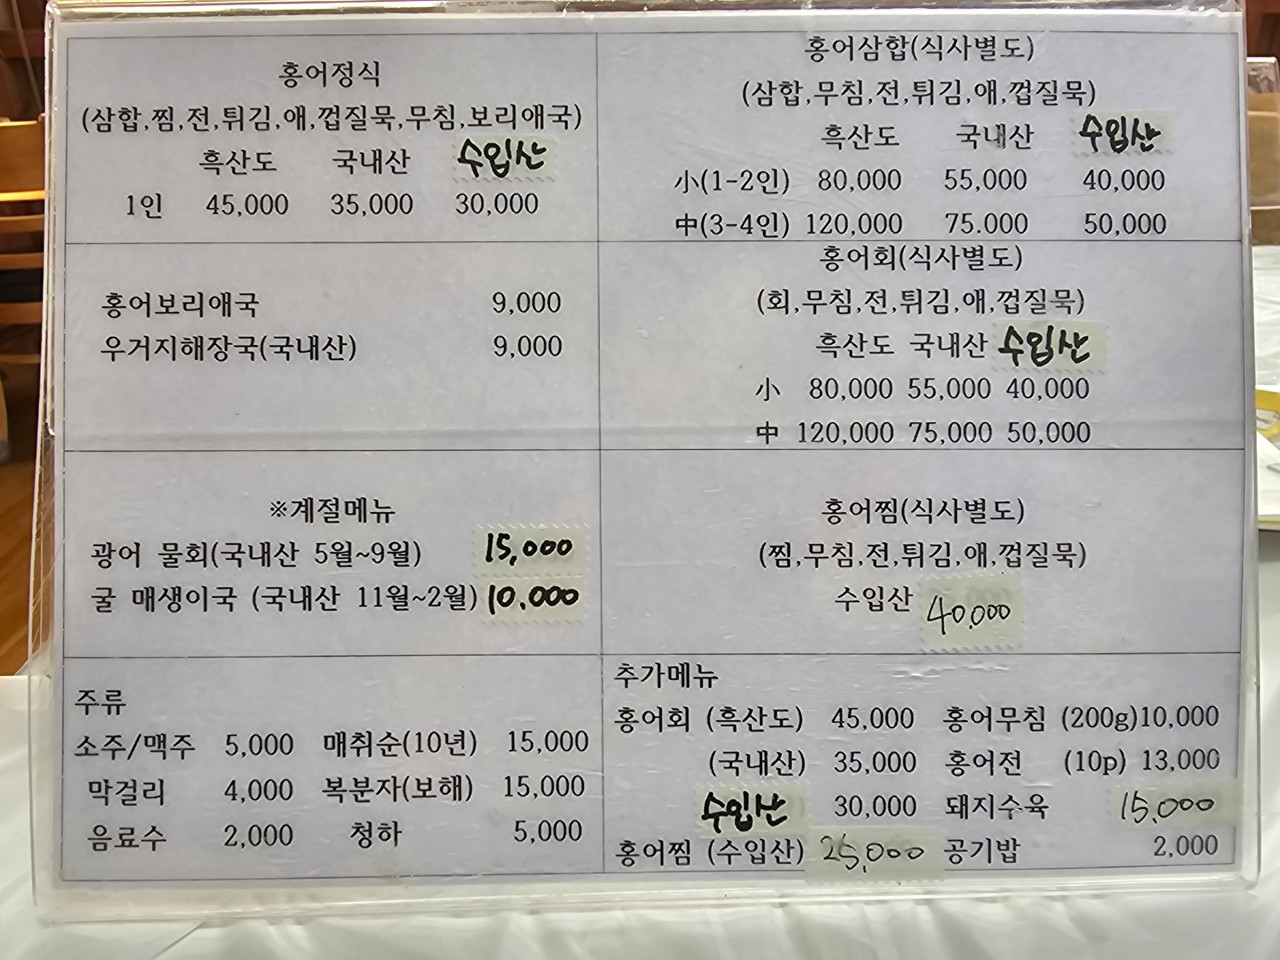 홍어정식
(삼합,찜,전,튀김,애,껍질묵,무침,보리애국)
흑산도 국내산 수입산
1인 45,000 35,000 30,000
홍어삼합(식사별도)
(삼합,무침,전,튀김,애,껍질묵)
흑산도 국내산 수입산
小(1-2인) 80,000 55,000 40,000
中(3-4인) 120,000 75.000 50,000
홍어보리애국 9,000
우거지해장국(국내산) 9,000
홍어회(식사별도)
(회,무침,전,튀김,애,껍질묵)
흑산도 국내산 수입산
小 80,000 55,000 40,000
中 120,000 75,000 50,000
※계절메뉴
광어 물회(국내산 5월~9월) 15,000
굴 매생이국 (국내산 11월~2월) 10.000
홍어찜(식사별도)
(찜,무침,전,튀김,애,껍질묵)
수입산 40.000
주류
소주/맥주 5,000 매취순(10년) 15,000
막걸리 4,000 복분자(보해) 15,000
음료수 2,000 청하 5,000
추가메뉴
홍어회 (흑산도) 45,000 홍어무침 (200g)10,000
(국내산) 35,000 홍어전 (10p) 13,000
수입산 30,000 돼지수육 15.000
홍어찜 (수입산) 25,000 공기밥 2,000